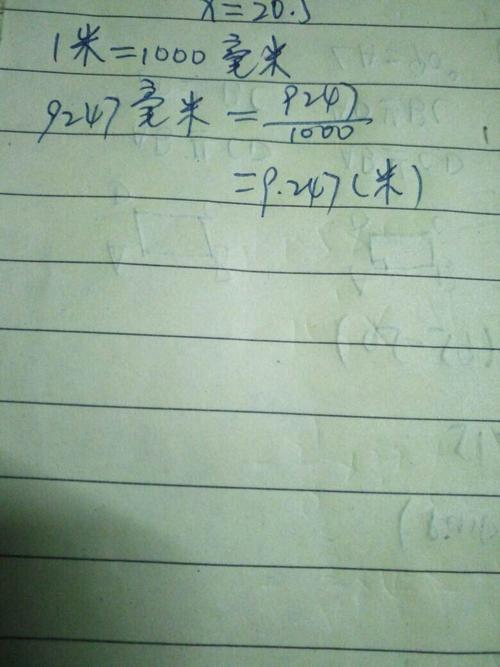 x=20.5
1米=1000毫米
9247毫米=9247/1000
=9.247(米)